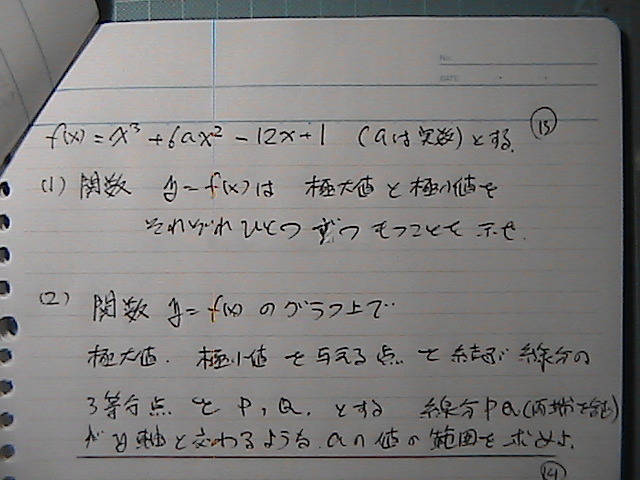 No.
DATE
⑬
f(x)=x³+6ax²-12x+1 (aは実数)とする.
(1) 関数 y=f(x)は 極大値と極小値を
それぞれひとつずつもつことを示せ.
(2) 関数 y=f(x)のグラフ上で
極大値. 極小値を与える点を結ぶ線分の
3等分点をP, Q, とする 線分PQ(両端を含む)
がy軸と交わるようなaの値の範囲を求めよ.
⑭